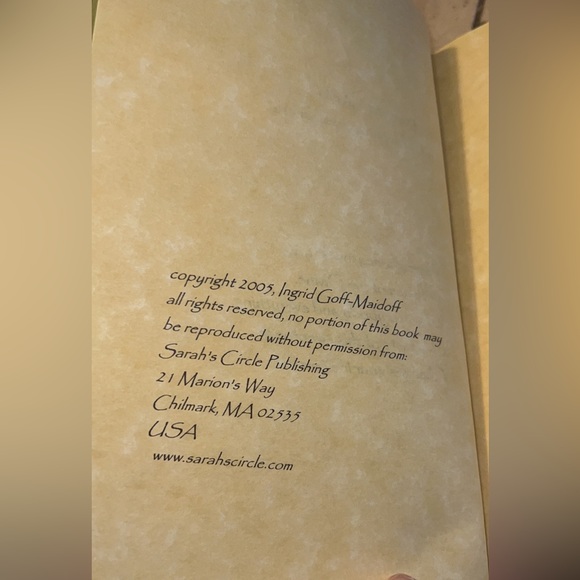 copyright 2005, Ingrid Goff-Maidoff
all rights reserved, no portion of this book may
be reproduced without permission from:
Sarah's Circle Publishing
21 Marion's Way
Chilmark, MA 02535
USA
www.sarahscircle.com